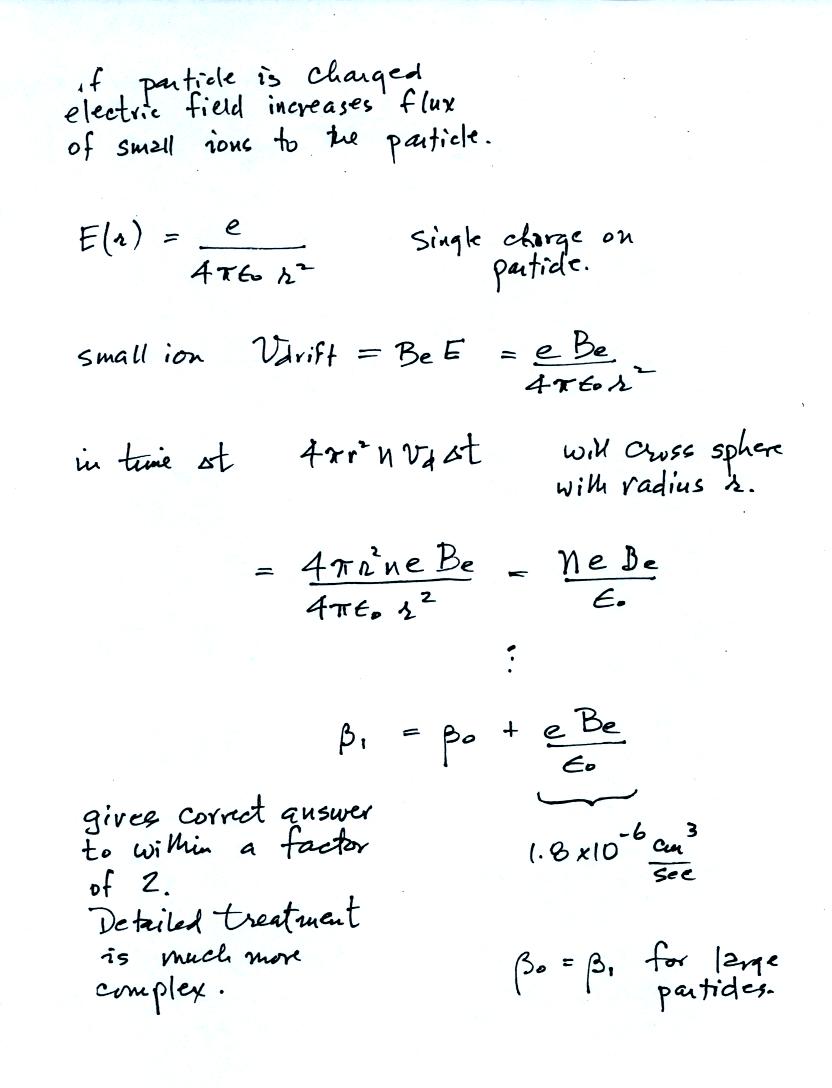 if particle is charged
electric field increases flux
of small ions to the particle.
E(r) = e / 4πε₀ r²    single charge on
particle.
small ion    Vdrift = Be E = e Be / 4πε₀ r²
in time Δt    4πr² n Vd Δt    will cross sphere
with radius r.
= 4πr² n e Be / 4πε₀ r² = n e Be / ε₀
⋮
β₁ = β₀ + e Be / ε₀
gives correct answer
to within a factor
of 2.
1.8 x10⁻⁶ cm³ / sec
Detailed treatment
is much more
complex.
β₀ = β₁ for large
particles.